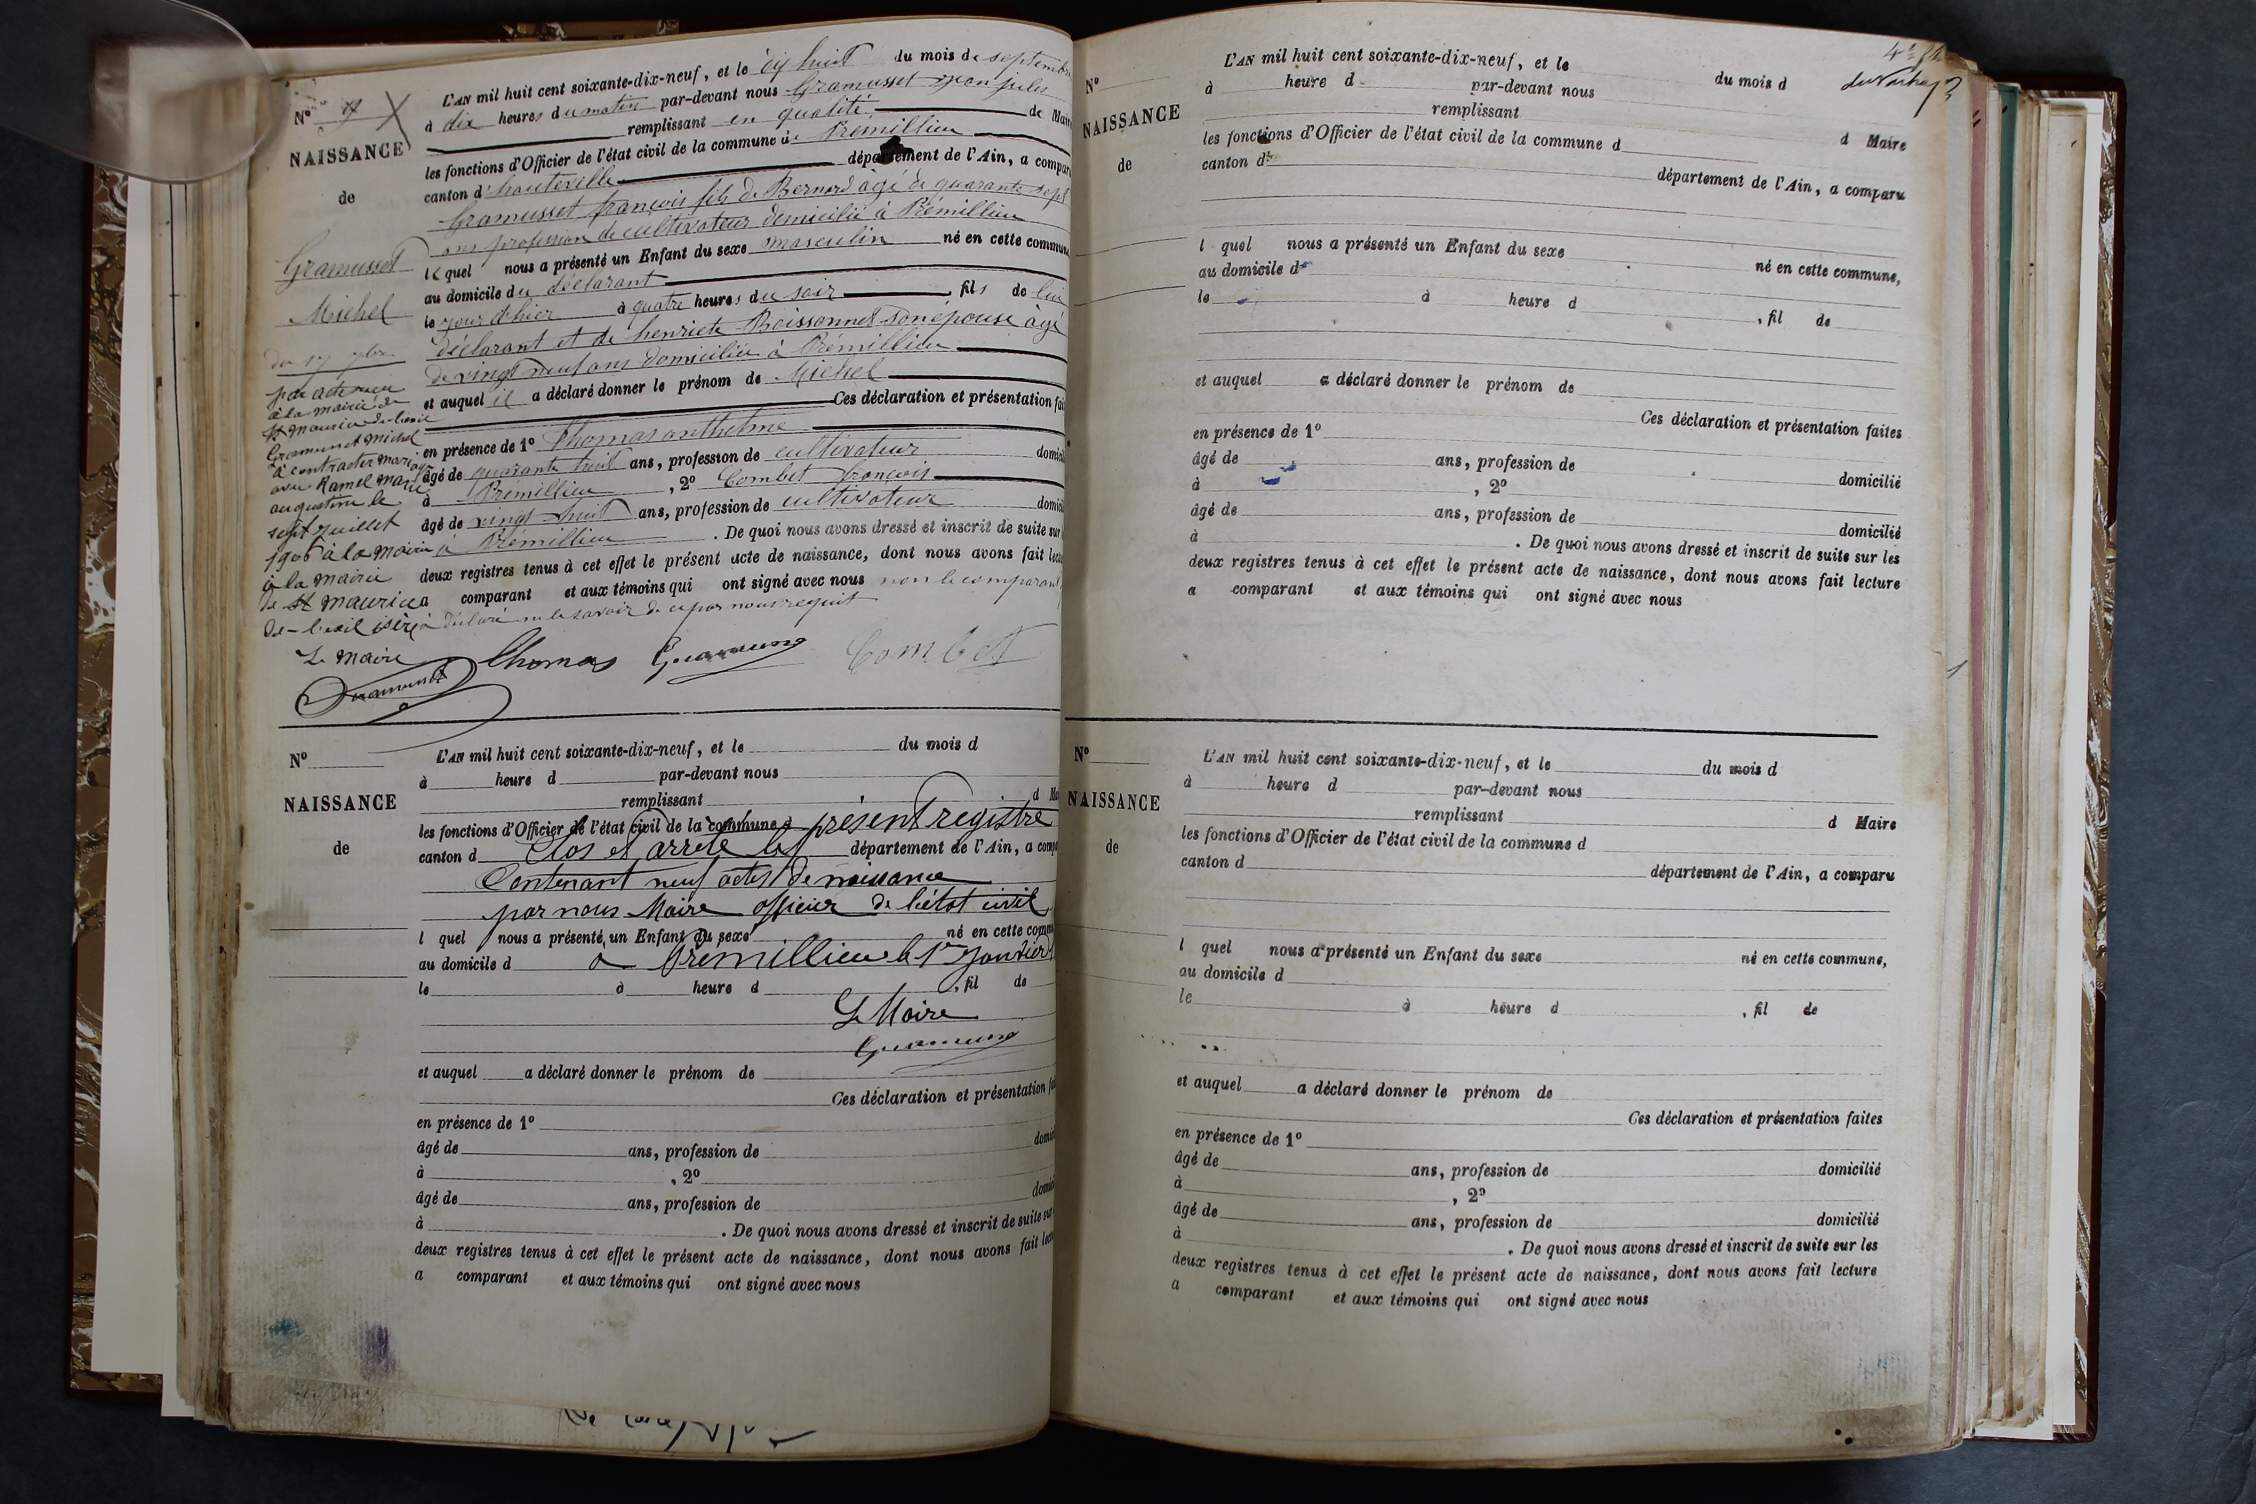 N° 9
NAISSANCE
de
Gramusset
Michel
du 17 7bre
par acte reçu
à la mairie de
St Maurice de-l'exil
Gramusset Michel
a contracter mariage
avec Ramel Marie
augustine le
sept juillet
1906 à la mairie
à la mairie
de St Maurice
de-l'exil isère
Le Maire
L'AN mil huit cent soixante-dix-neuf, et le dix huit du mois de septembre
à dix heures du matin par-devant nous Gramusset jean jules
remplissant en qualité de Maire
les fonctions d'Officier de l'état civil de la commune de Prémillieu
canton d'hauteville département de l'Ain, a comparu
Gramusset françois fils de Bernard âgé de quarante sept
ans profession de cultivateur domicilié à Prémillieu
lequel nous a présenté un Enfant du sexe masculin né en cette commune
au domicile du déclarant
le jour d'hier à quatre heures du soir, fils de lui
déclarant et de henriete Boissonnet son épouse âgé
de vingt neuf ans domiciliée à Prémillieu
et auquel il a déclaré donner le prénom de Michel
Ces déclaration et présentation fai
en présence de 1° Thomas anthelme
âgé de quarante huit ans, profession de cultivateur domicil
à Prémillieu, 2° Combet françois
âgé de vingt huit ans, profession de cultivateur domicil
à Prémillieu. De quoi nous avons dressé et inscrit de suite sur
deux registres tenus à cet effet le présent acte de naissance, dont nous avons fait lect
a comparant et aux témoins qui ont signé avec nous non le comparant
a déclaré ne le savoir de ce par nous requit
Thomas Gramusset Combet
N°
NAISSANCE
de
L'AN mil huit cent soixante-dix-neuf, et le du mois d
à heure d par-devant nous
remplissant d Mai
les fonctions d'Officier de l'état civil de la commune d
canton d département de l'Ain, a compa
Clos et arrêté le présent registre
Contenant neuf actes de naissance
par nous Maire officier de l'état civil
l quel nous a présenté un Enfant du sexe né en cette comm
au domicile d
à Prémillieu le 1er janvier
le à heure d, fil de
Le Maire
Gramusset
et auquel a déclaré donner le prénom de
Ces déclaration et présentation fai
en présence de 1°
âgé de ans, profession de domici
à, 2°
âgé de ans, profession de domici
à. De quoi nous avons dressé et inscrit de suite sur
deux registres tenus à cet effet le présent acte de naissance, dont nous avons fait lect
a comparant et aux témoins qui ont signé avec nous
N°
NAISSANCE
de
L'AN mil huit cent soixante-dix-neuf, et le du mois d
à heure d par-devant nous
remplissant d Maire
les fonctions d'Officier de l'état civil de la commune d
canton d département de l'Ain, a comparu
l quel nous a présenté un Enfant du sexe né en cette commune,
au domicile d
le à heure d, fil de
et auquel a déclaré donner le prénom de
Ces déclaration et présentation faites
en présence de 1°
âgé de ans, profession de domicilié
à, 2°
âgé de ans, profession de domicilié
à. De quoi nous avons dressé et inscrit de suite sur les
deux registres tenus à cet effet le présent acte de naissance, dont nous avons fait lecture
a comparant et aux témoins qui ont signé avec nous
N°
NAISSANCE
de
L'AN mil huit cent soixante-dix-neuf, et le du mois d
à heure d par-devant nous
remplissant d Maire
les fonctions d'Officier de l'état civil de la commune d
canton d département de l'Ain, a comparu
l quel nous a présenté un Enfant du sexe né en cette commune,
au domicile d
le à heure d, fil de
et auquel a déclaré donner le prénom de
Ces déclaration et présentation faites
en présence de 1°
âgé de ans, profession de domicilié
à, 2°
âgé de ans, profession de domicilié
à. De quoi nous avons dressé et inscrit de suite sur les
deux registres tenus à cet effet le présent acte de naissance, dont nous avons fait lecture
a comparant et aux témoins qui ont signé avec nous